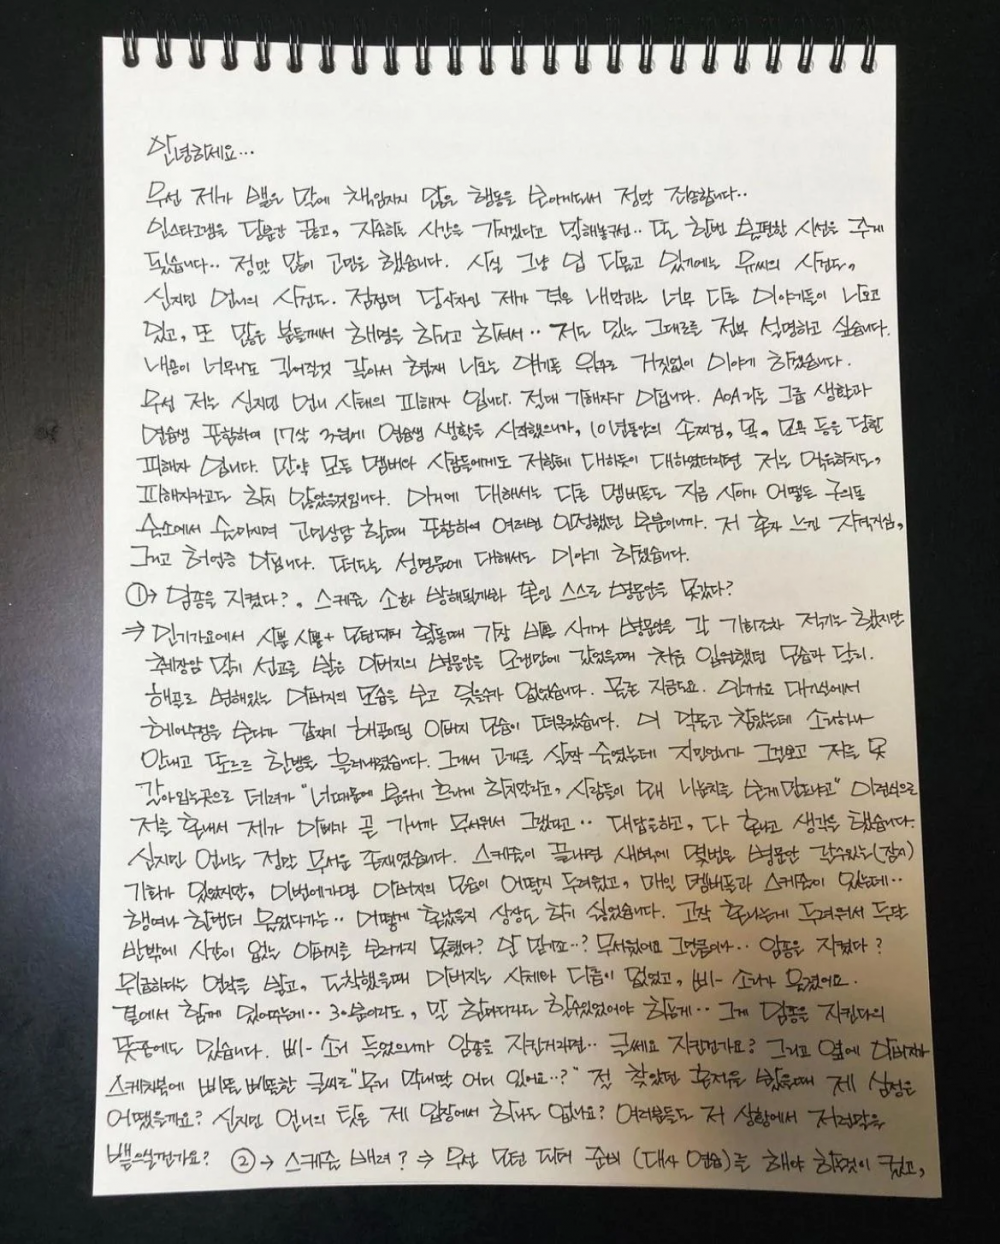 안녕하세요...
우선 제가 뱉은 말에 책임지지 않은 행동을 보이게되서 정말 죄송합니다..
인스타그램을 당분간 끊고, 자숙하는 시간을 가지겠다고 말해놓구선.. 또 한번 불편한 시선을 주게
됬습니다.. 정말 많이 고민을 했습니다. 사실 그냥 입 다물고 있기에는 유씨의 사건도,
신지민 언니의 사건도. 점점더 당사자인 제가 겪은 내막과는 너무 다른 이야기들이 나오고
있고, 또 많은 분들께서 해명을 하라고 하셔서.. 저도 있는 그대로를 전부 설명하고 싶습니다.
내용이 너무나도 길어질것 같아서 현재 나오는 얘기들 위주로 거짓없이 이야기 하겠습니다.
우선 저는 신지민 언니 사태의 피해자 입니다. 절대 가해자가 아닙니다. AOA라는 그룹 생활과
연습생 포함하여 17살 3월에 연습생 생활을 시작했으니까, 10년동안의 손찌검, 욕, 모욕 등을 당한
피해자 입니다. 만약 모든 멤버와 사람들에게도 저한테 대하듯이 대하였더라면 저는 억울하지도,
피해자라고도 하지 않았을것입니다. 이거에 대해서는 다른 멤버들도 지금 시아가 어떻든 구의동
숙소에서 술마시며 고민상담 할때 포함하여 여러번 인정했던 부분이니까. 저 혼자 느낀 자격지심,
그리고 허언증 아닙니다. 떠도는 성명문에 대해서도 이야기 하겠습니다.
①→ 임종을 지켰다?, 스케줄 소화 방해될까봐 본인 스스로 병문안을 못갔다?
⇒ 인기가요에서 사뿐사뿐+ 모던파머 활동때 가장 바쁜 시기라 병문안을 갈 기회조차 적기는 했지만
췌장암 말기 선고를 받은 아버지의 병문안을 오랜만에 갔었을때 처음 입원했던 모습과 달리.
해골로 변해있는 아버지의 모습을 보고 잊을수가 없었습니다. 물론 지금도요. 인기가요 대기실에서
헤어수정을 보다가 갑자기 해골이된 아버지 모습이 떠올랐습니다. 이 악물고 참았는데 소리하나
안내고 또르르 한방울 흘러내렸습니다. 그래서 고개를 살짝 숙였는데 지민언니가 그걸보고 저를 옷
갈아입는곳으로 데려가 "너때문에 분위기 흐리게 하지말라고, 사람들이 왜 니눈치를 보게 만드냐고" 이런식으로
저를 혼내서 제가 아빠가 곧 가니까 무서워서 그랬다고.. 대답을하고, 다 혼나고 생각을 했습니다.
신지민 언니는 정말 무서운 존재였습니다. 스케줄이 끝나면 새벽에 몇번은 병문안 갈수있는(잠시)
기회가 있었지만, 이번에가면 아버지의 모습이 어떨지 두려웠고, 매일 멤버들과 스케줄이 있는데..
행여나 한탬더 울었다가는.. 어떻게 혼났을지 상상도 하기 싫었습니다. 고작 혼나는게 두려워서 두달
반밖에 시간이 없는 아버지를 보러가지 못했다? 안 믿기죠..? 무서웠어요 그만큼이나.. 임종을 지켰다?
위급하다는 연락을 받고, 도착했을때 아버지는 시체와 다름이 없었고, 삐- 소리가 울렸어요.
곁에서 함께 있어주는게.. 30분이라도, 말 한마디라도 할수있었어야 하는게.. 그게 임종을 지킨다의
뜻중에도 있습니다. 삐- 소리 들었으니까 임종을 지킨거라면.. 글쎄요 지킨건가요? 그리고 옆에 아버지가
스케치북에 삐뚤 삐뚤한 글씨로 "우리 막내딸 어디 있어요..?" 절 찾았던 흔적을 봤을때 제 심정은
어땠을까요? 신지민 언니의 탓은 제 입장에서 하나도 없나요? 여러분들도 저 상황에서 저런말을
뱉으실건가요? ②→ 스케줄 배려? ⇒ 우선 모던 파머 준비 (대사 연습)를 해야 하는것이 컸고,